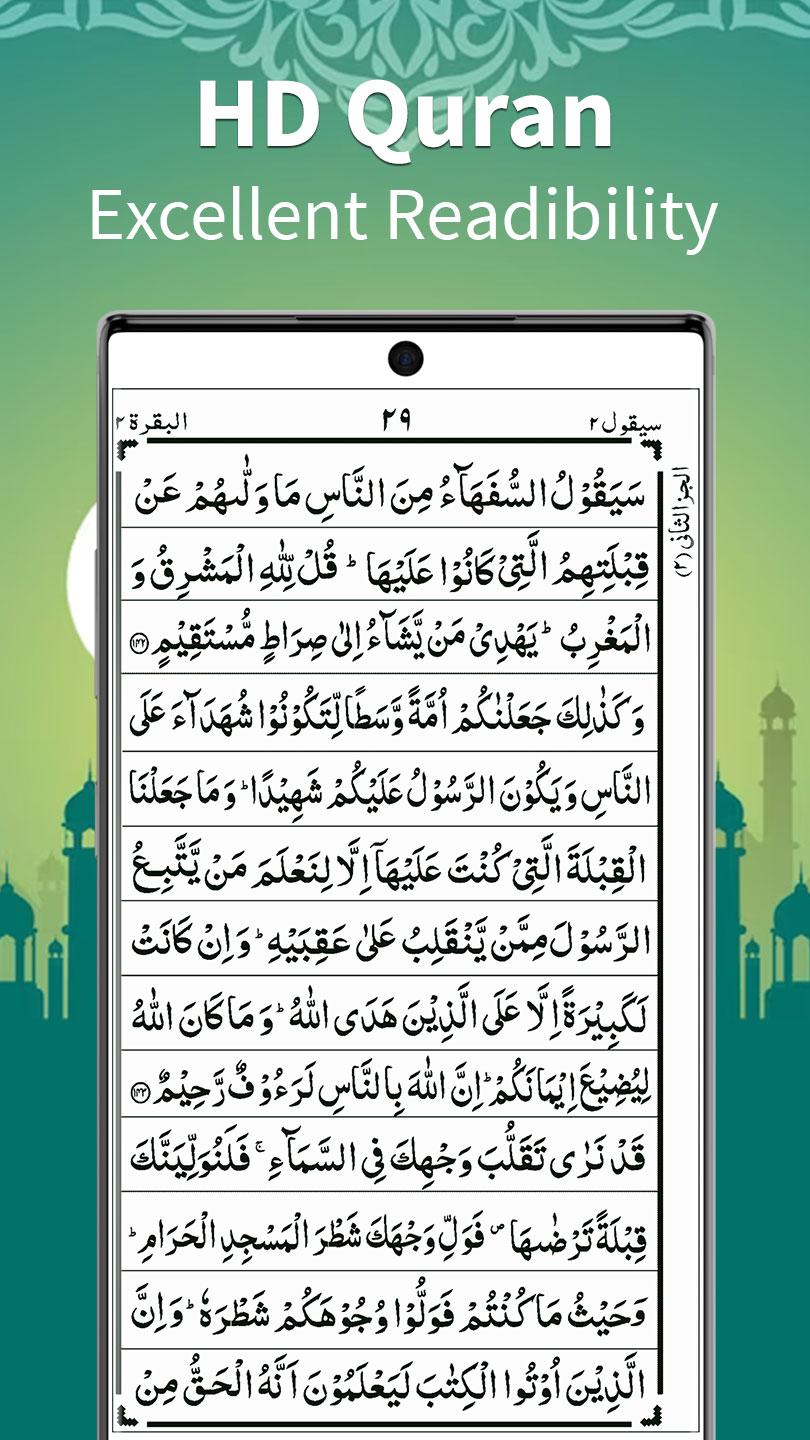 HD Quran
Excellent Readibility
سيقول ٢ ٢٩ البقرة ٢
الجزالثانی (٢)
سَيَقُوْلُ السُّفَهَآءُ مِنَ النَّاسِ مَا وَلّٰىهُمْ عَنْ
قِبْلَتِهِمُ الَّتِیْ كَانُوْا عَلَيْهَا ؕ قُلْ لِّلّٰهِ الْمَشْرِقُ وَ
الْمَغْرِبُ ؕ يَهْدِیْ مَنْ يَّشَآءُ اِلٰی صِرَاطٍ مُّسْتَقِيْمٍ ۝۱۴۲
وَ كَذٰلِكَ جَعَلْنٰكُمْ اُمَّةً وَّسَطًا لِّتَكُوْنُوْا شُهَدَآءَ عَلَی
النَّاسِ وَ يَكُوْنَ الرَّسُوْلُ عَلَيْكُمْ شَهِيْدًا ؕ وَ مَا جَعَلْنَا
الْقِبْلَةَ الَّتِیْ كُنْتَ عَلَيْهَآ اِلَّا لِنَعْلَمَ مَنْ يَّتَّبِعُ
الرَّسُوْلَ مِمَّنْ يَّنْقَلِبُ عَلٰی عَقِبَيْهِ ؕ وَ اِنْ كَانَتْ
لَكَبِيْرَةً اِلَّا عَلَی الَّذِيْنَ هَدَی اللّٰهُ ؕ وَ مَا كَانَ اللّٰهُ
لِيُضِيْعَ اِيْمَانَكُمْ ؕ اِنَّ اللّٰهَ بِالنَّاسِ لَرَءُوْفٌ رَّحِيْمٌ ۝۱۴۳
قَدْ نَرٰی تَقَلُّبَ وَجْهِكَ فِی السَّمَآءِ ۚ فَلَنُوَلِّيَنَّكَ
قِبْلَةً تَرْضٰىهَا ۪ فَوَلِّ وَجْهَكَ شَطْرَ الْمَسْجِدِ الْحَرَامِ ؕ
وَحَيْثُ مَا كُنْتُمْ فَوَلُّوْا وُجُوْهَكُمْ شَطْرَهٗ ؕ وَ اِنَّ
الَّذِيْنَ اُوْتُوا الْكِتٰبَ لَيَعْلَمُوْنَ اَنَّهُ الْحَقُّ مِنْ